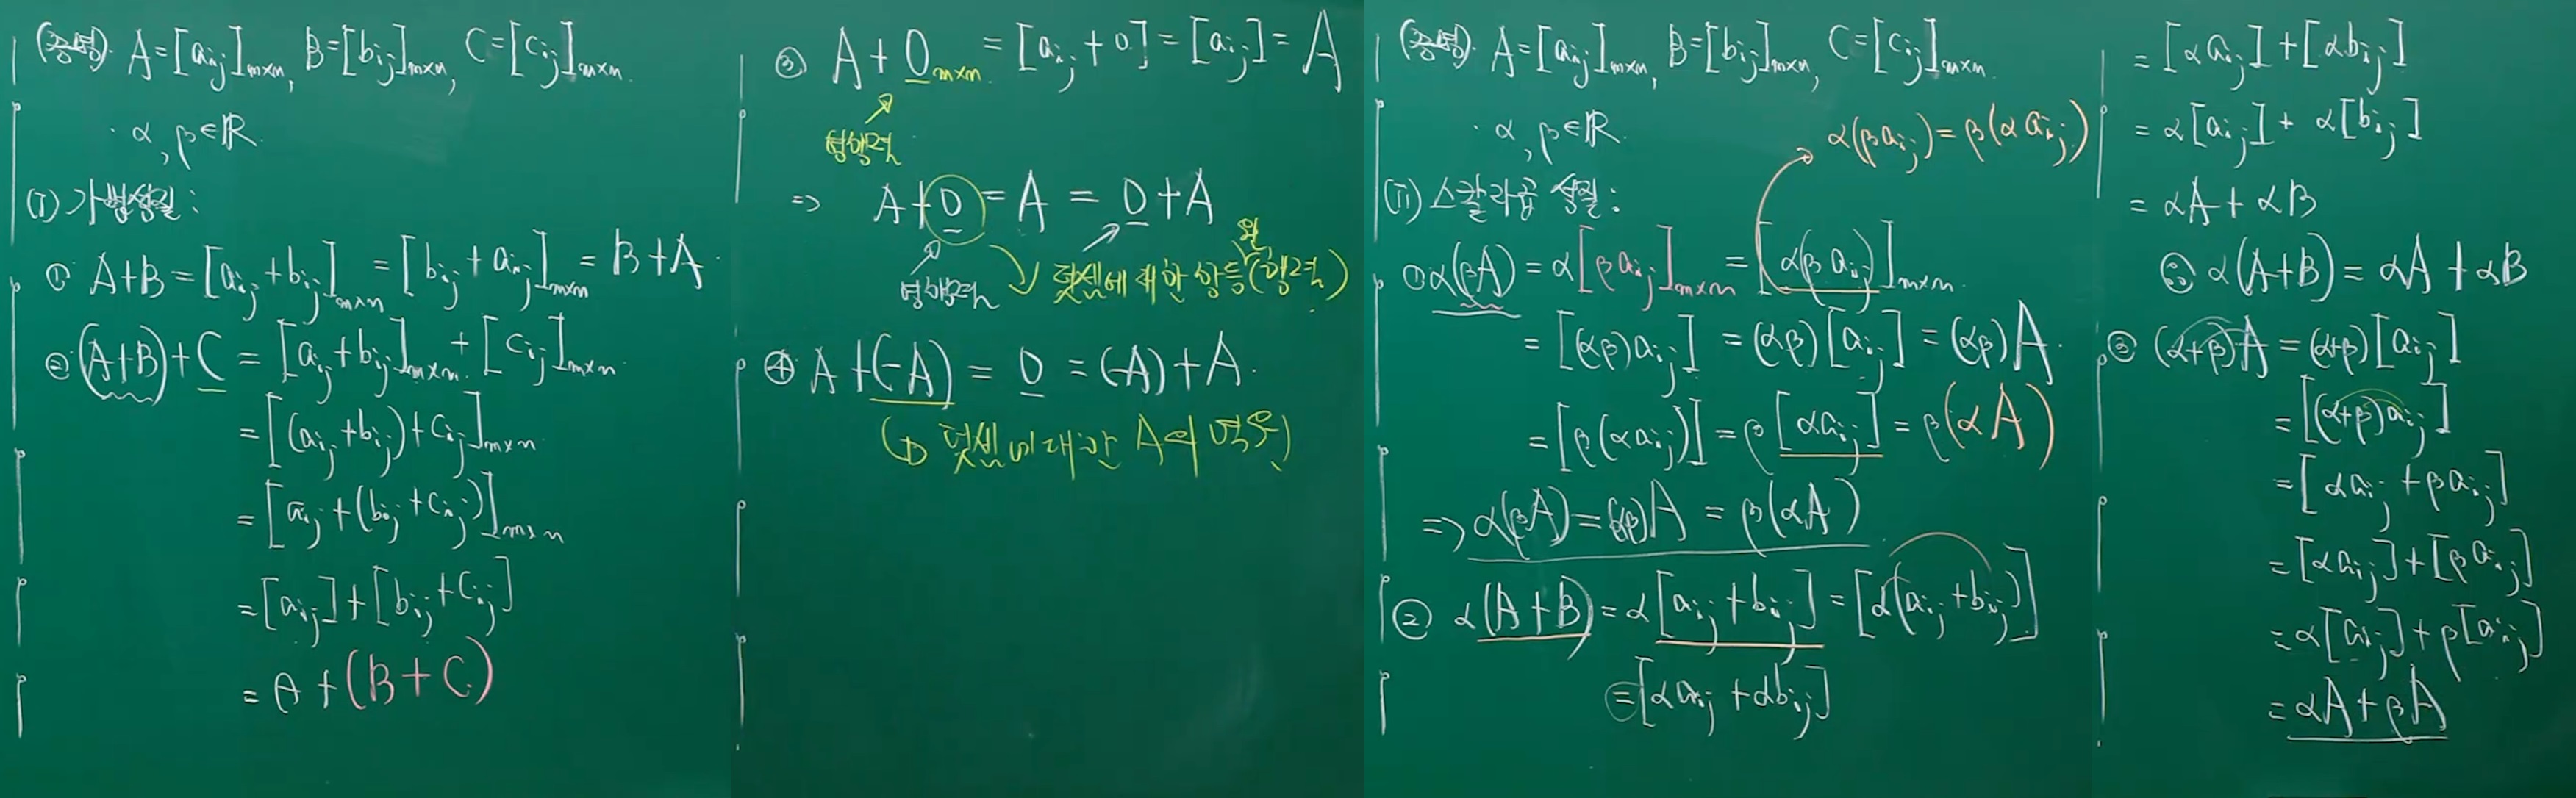 (증명) A=[aij]m×n, B=[bij]m×n, C=[cij]m×n.
· α, β∈ℝ.
(I) 가법성질:
① A+B=[aij+bij]m×n=[bij+aij]m×n=B+A.
② (A+B)+C=[aij+bij]m×n+[cij]m×n.
=[(aij+bij)+cij]m×n
=[aij+(bij+cij)]m×n
=[aij]+[bij+cij]
=A+(B+C)
③ A+Om×n=[aij+0]=[aij]=A
영행렬
=> A+O=A=O+A
영행렬
덧셈에 대한 항등(행렬)
원
④ A+(-A)=O=(-A)+A.
덧셈에 대한 A의 역원)
(증명) A=[aij]m×n, B=[bij]m×n, C=[cij]m×n.
· α, β∈ℝ.
α(βaij)=β(αaij)
(II) 스칼라곱 성질:
① α(βA)=α[βaij]m×n=[α(βaij)]m×n.
=[(αβ)aij]=(αβ)[aij]=(αβ)A.
=[β(αaij)]=β[αaij]=β(αA)
=> α(βA)=(αβ)A=β(αA)
② α(A+B)=α[aij+bij]=[α(aij+bij)]
=[αaij+αbij]
=[αaij]+[αbij]
=α[aij]+α[bij]
=αA+αB
∴ α(A+B)=αA+αB
③ (α+β)A=(α+β)[aij]
=[(α+β)aij]
=[αaij+βaij]
=[αaij]+[βaij]
=α[aij]+β[aij]
=αA+βA